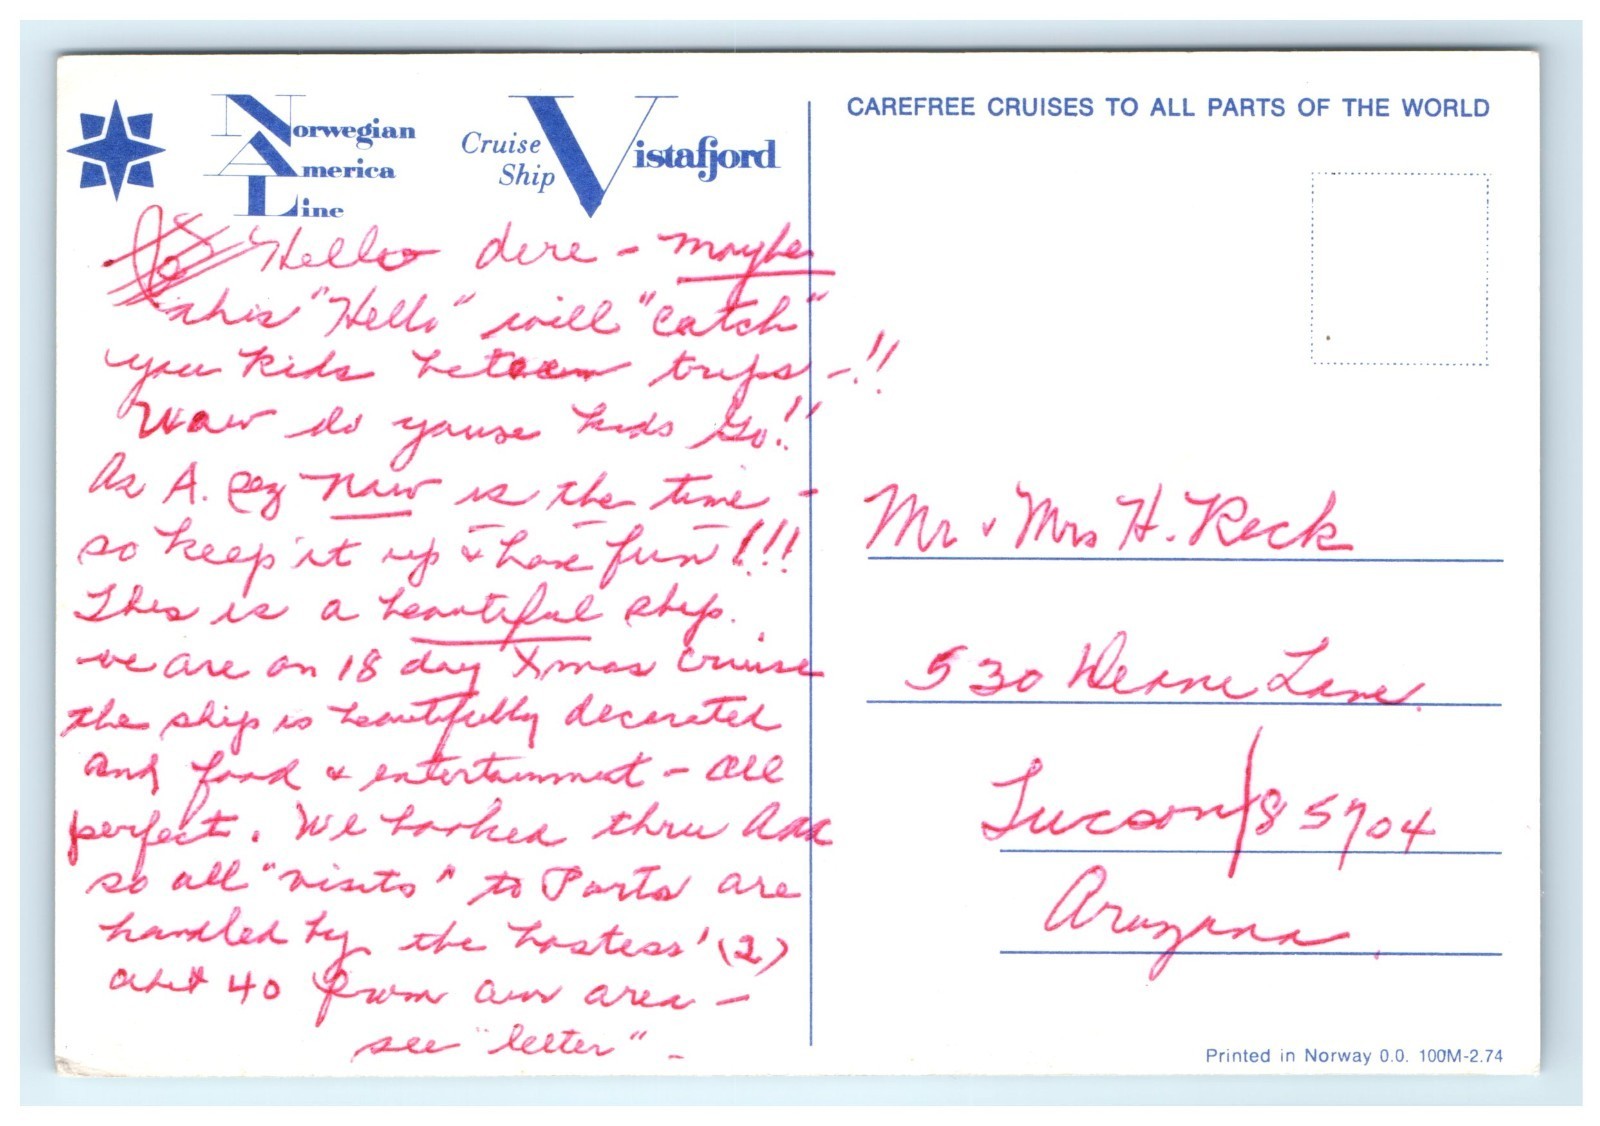 Norwegian
America
Line
Cruise
Ship
Vistafjord
CAREFREE CRUISES TO ALL PARTS OF THE WORLD
Hello dere - maybe
this "Hello" will "catch"
you kids between trips -!!
Waw do youse kids go!!
As A. sez Naw is the time -
so keep it up & have fun!!!
This is a beautiful ship.
we are on 18 day Xmas cruise
the ship is beautifully decorated
and food & entertainment - all
perfect. We booked thru AAA
so all "visits" to Ports are
handled by the hostess' (2)
abt 40 from our area -
see "letter" -
Mr & Mrs H. Reck
530 Deane Lane
Tucson/85704
Arizona
Printed in Norway 0.0. 100M-2.74